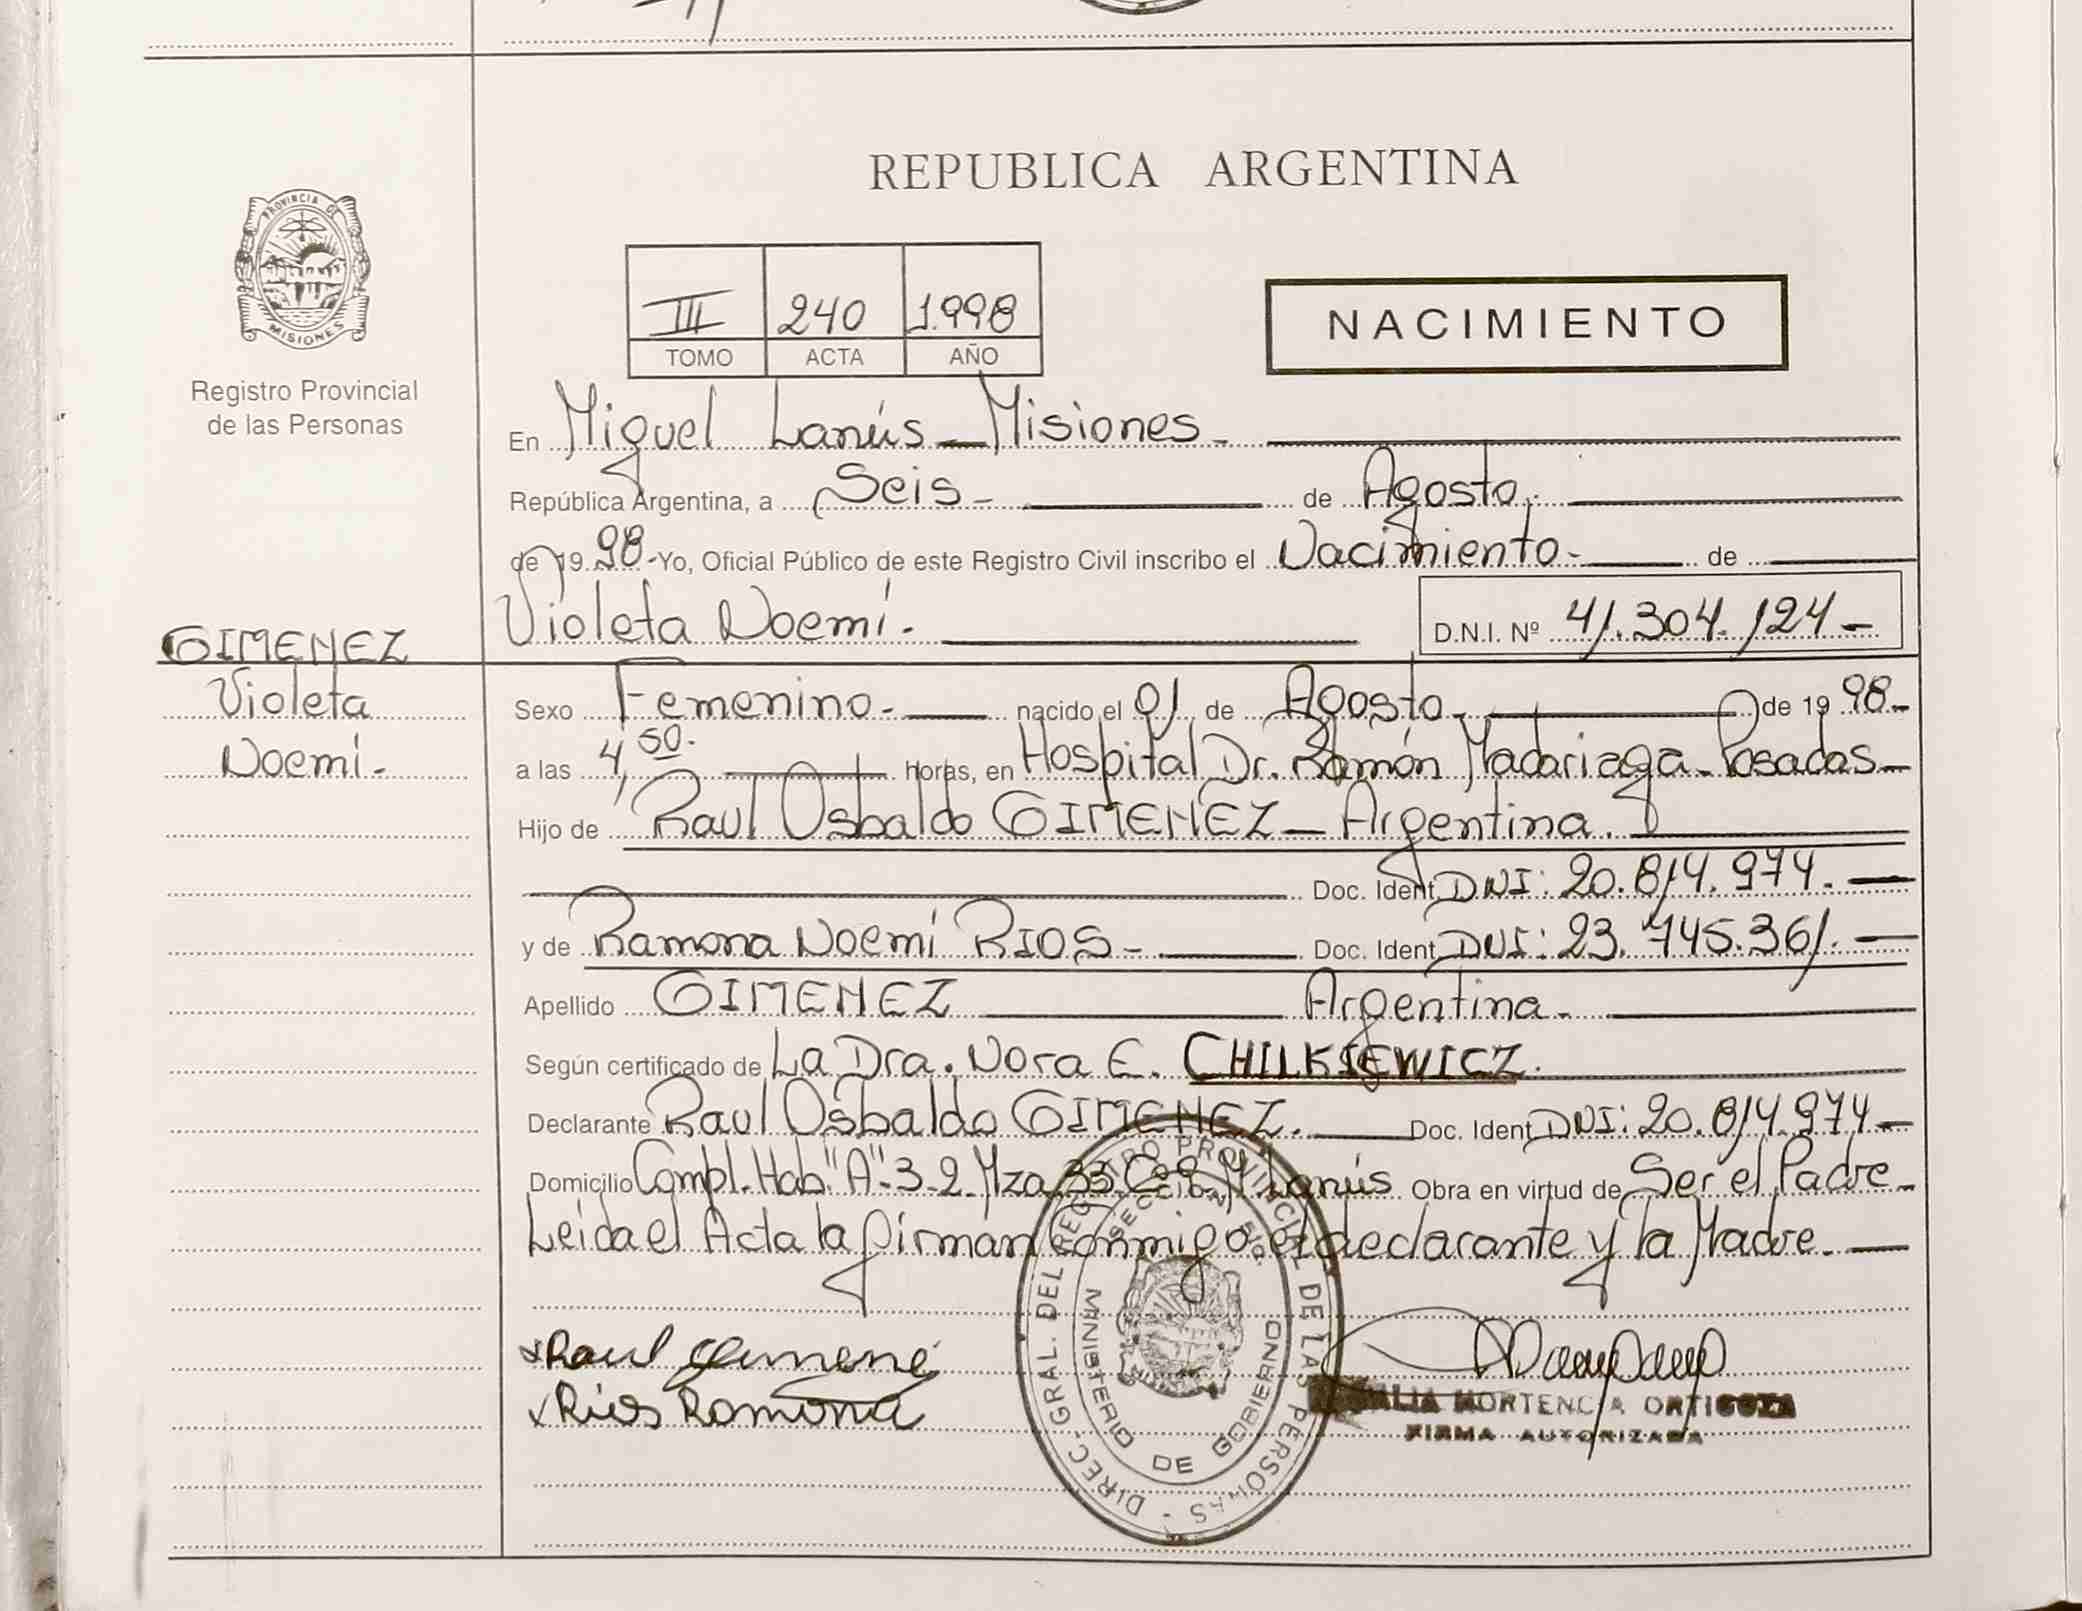 REPUBLICA ARGENTINA
PROVINCIA DE
MISIONES
Registro Provincial
de las Personas
III 240 1.998
TOMO ACTA AÑO
NACIMIENTO
En Miguel Lanús - Misiones -
República Argentina, a Seis - de Agosto.
de 19 98 - Yo, Oficial Público de este Registro Civil inscribo el Nacimiento - de
Violeta Noemí - D.N.I. Nº 41.304.124 -
GIMENEZ
Violeta
Noemí -
Sexo Femenino - nacido el 01 de Agosto - de 19 98 -
a las 4,50 - horas, en Hospital Dr. Ramón Madariaga - Posadas -
Hijo de Raul Osbaldo GIMENEZ - Argentina.
Doc. Ident. DNI: 20.814.974. -
y de Ramona Noemí RIOS - Doc. Ident. DNI: 23.745.361. -
Apellido GIMENEZ Argentina -
Según certificado de La Dra. Nora E. CHILKIEWICZ.
Declarante Raul Osbaldo GIMENEZ. Doc. Ident. DNI: 20.814.974 -
Domicilio Compl. Hab "A" - 3-2 Mza 33 Lanús Obra en virtud de Ser el Padre -
Leida el Acta la firman conmigo el declarante y la Madre -
x Raul Gimene
x Rios Ramona
HORTENCIA ORTIGOZA
FIRMA AUTORIZADA
DIREC. GRAL. DEL REGISTRO PROVINCIAL DE LAS PERSONAS
MINISTERIO DE GOBIERNO